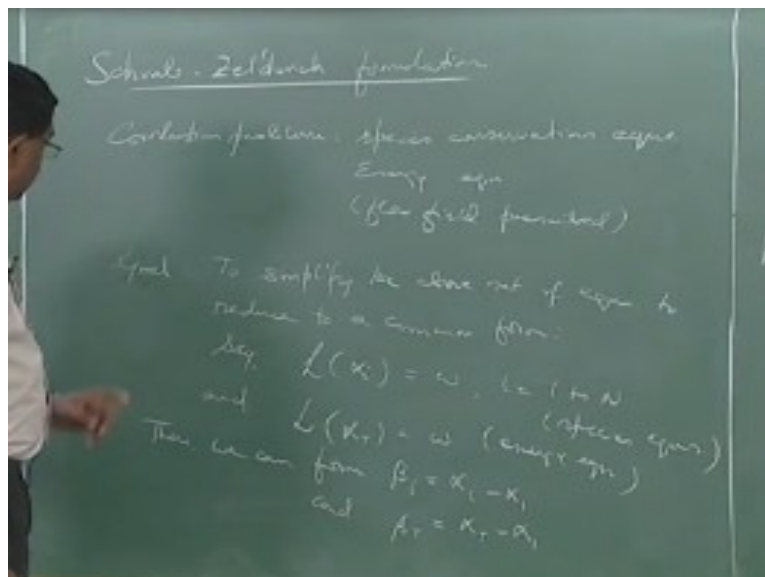 Schvab-Zel'dovich formulation
Combustion problem: species conservation eqns
Energy eqn
(flow field prescribed)
Goal To simplify the above set of eqns to
reduce to a common form:
Say, L(α_i) = ω, i = 1 to N
(species eqns)
and L(α_T) = ω (energy eqn)
Then we can form β_i = α_i - α_1
and β_T = α_T - α_1